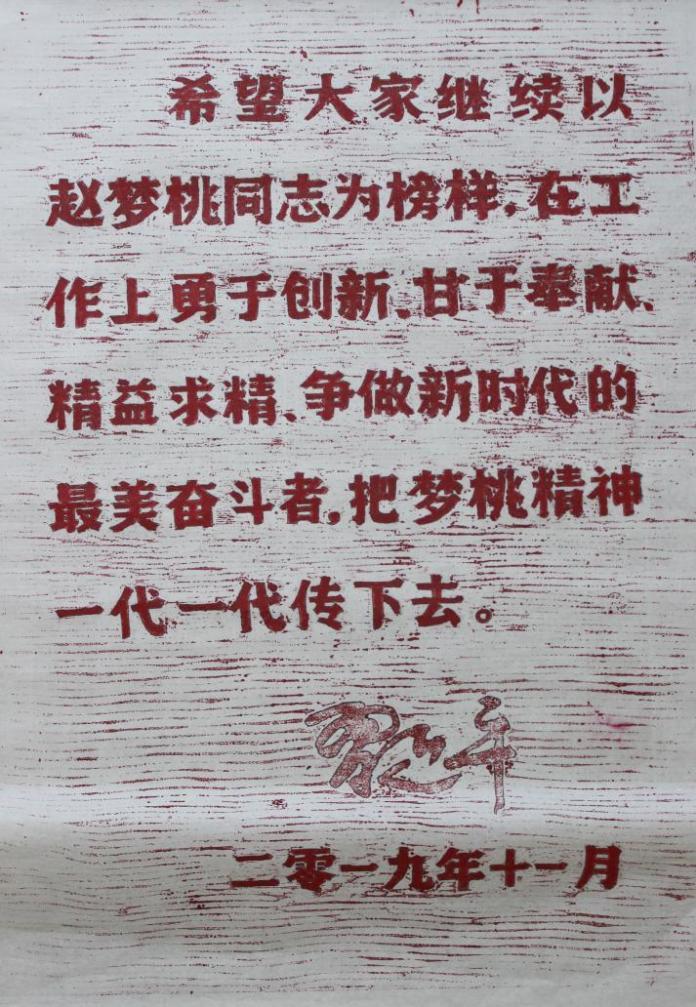 希望大家继续以
赵梦桃同志为榜样,在工
作上勇于创新、甘于奉献、
精益求精、争做新时代的
最美奋斗者,把梦桃精神
一代一代传下去。
二零一九年十一月